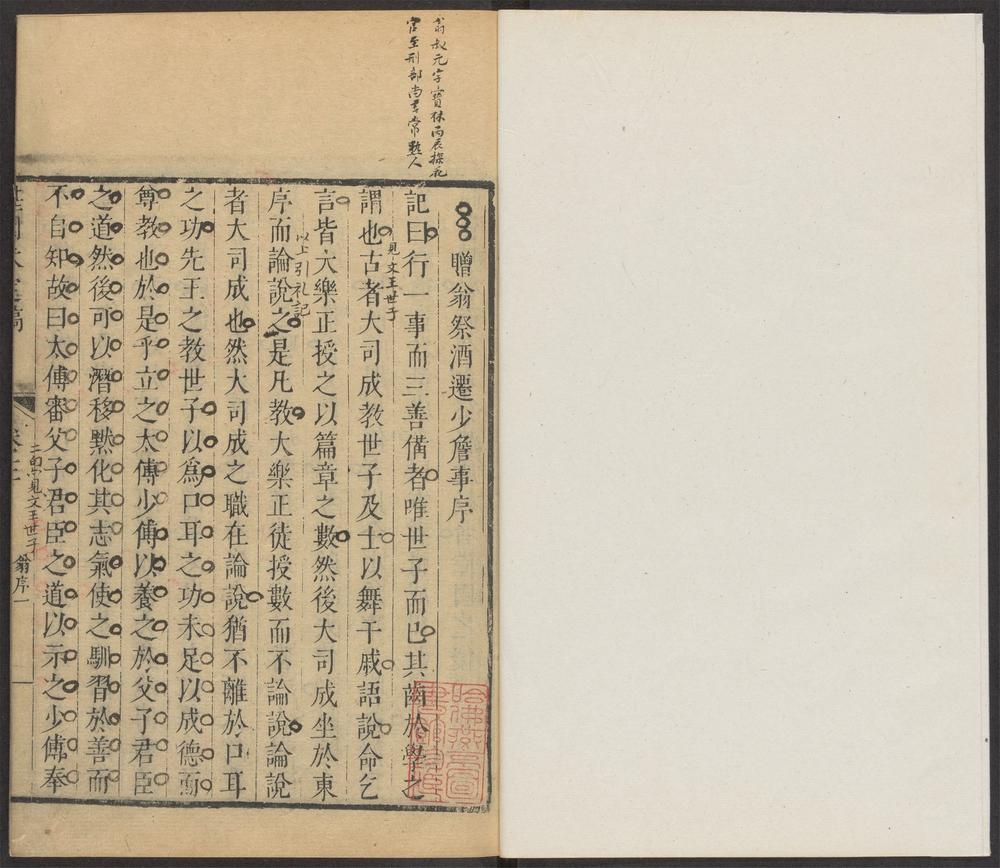 翁叔元字寶林丙辰探花
官至刑部尚書常熟人
贈翁祭酒遷少詹事序
記曰行一事而三善備者唯世子而已其齒於學之
見文王世子
謂也古者大司成教世子及士以舞干戚語說命乞
言皆大樂正授之以篇章之數然後大司成坐於東
以上引礼記
序而論說之是凡教大樂正徒授數而不論說論說
者大司成也然大司成之職在論說猶不離於口耳
之功先王之教世子以爲口耳之功未足以成德而
尊教也於是乎立之太傅少傅以養之於父子君臣
之道然後可以潛移默化其志氣使之馴習於善而
不自知故曰太傅審父子君臣之道以示之少傅奉
二南見文王世子
翁序一